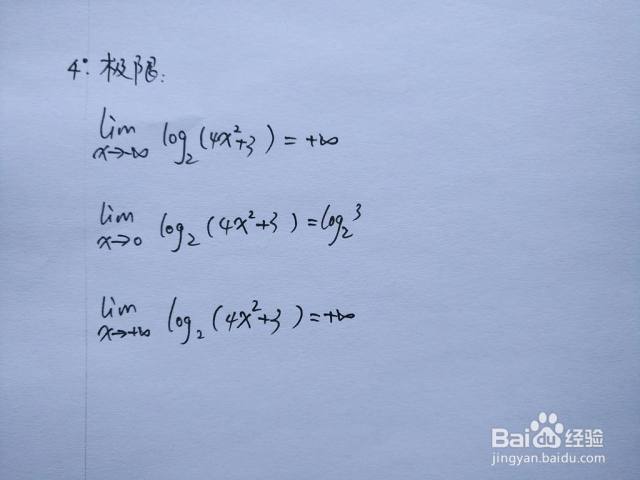 4°: 极限:
lim x→-∞ log₂(4x²+3) = +∞
lim x→0 log₂(4x²+3) = log₂3
lim x→+∞ log₂(4x²+3) = +∞
Bai du 经验
jingyan.baidu.com